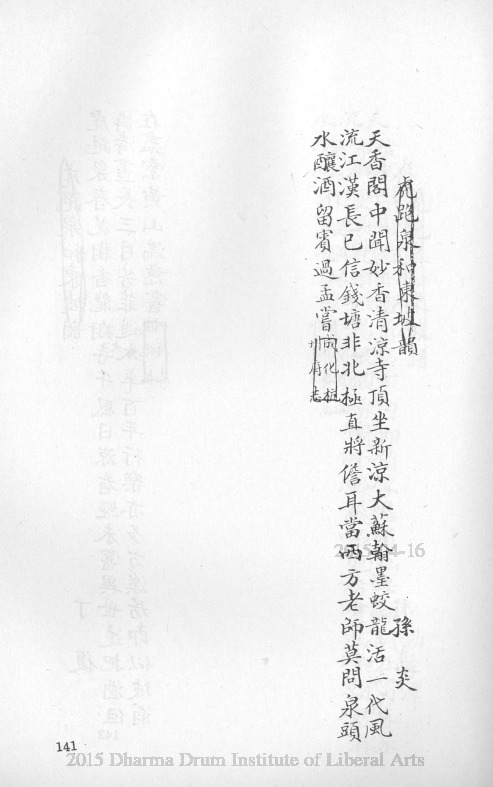 虎跑泉和東坡韻
孫炎
天香閣中聞妙香清涼寺頂坐新涼大蘇翰墨蛟龍活一代風
流江漢長已信錢塘非北極直將儋耳當西方老師莫問泉頭
水釀酒留賓過孟嘗成化杭州府志
141
2015 Dharma Drum Institute of Liberal Arts